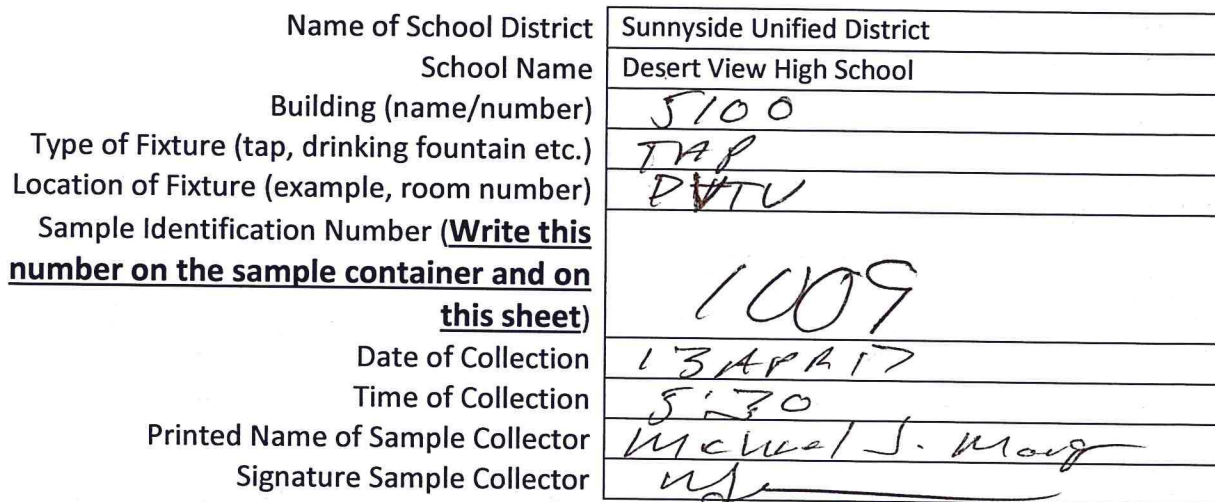 Name of School District Sunnyside Unified District
School Name Desert View High School
Building (name/number) 5100
Type of Fixture (tap, drinking fountain etc.) TAP
Location of Fixture (example, room number) DVTV
Sample Identification Number (Write this
number on the sample container and on
this sheet) 1009
Date of Collection 13 APR 17
Time of Collection 5:30
Printed Name of Sample Collector Michael J.
Signature Sample Collector